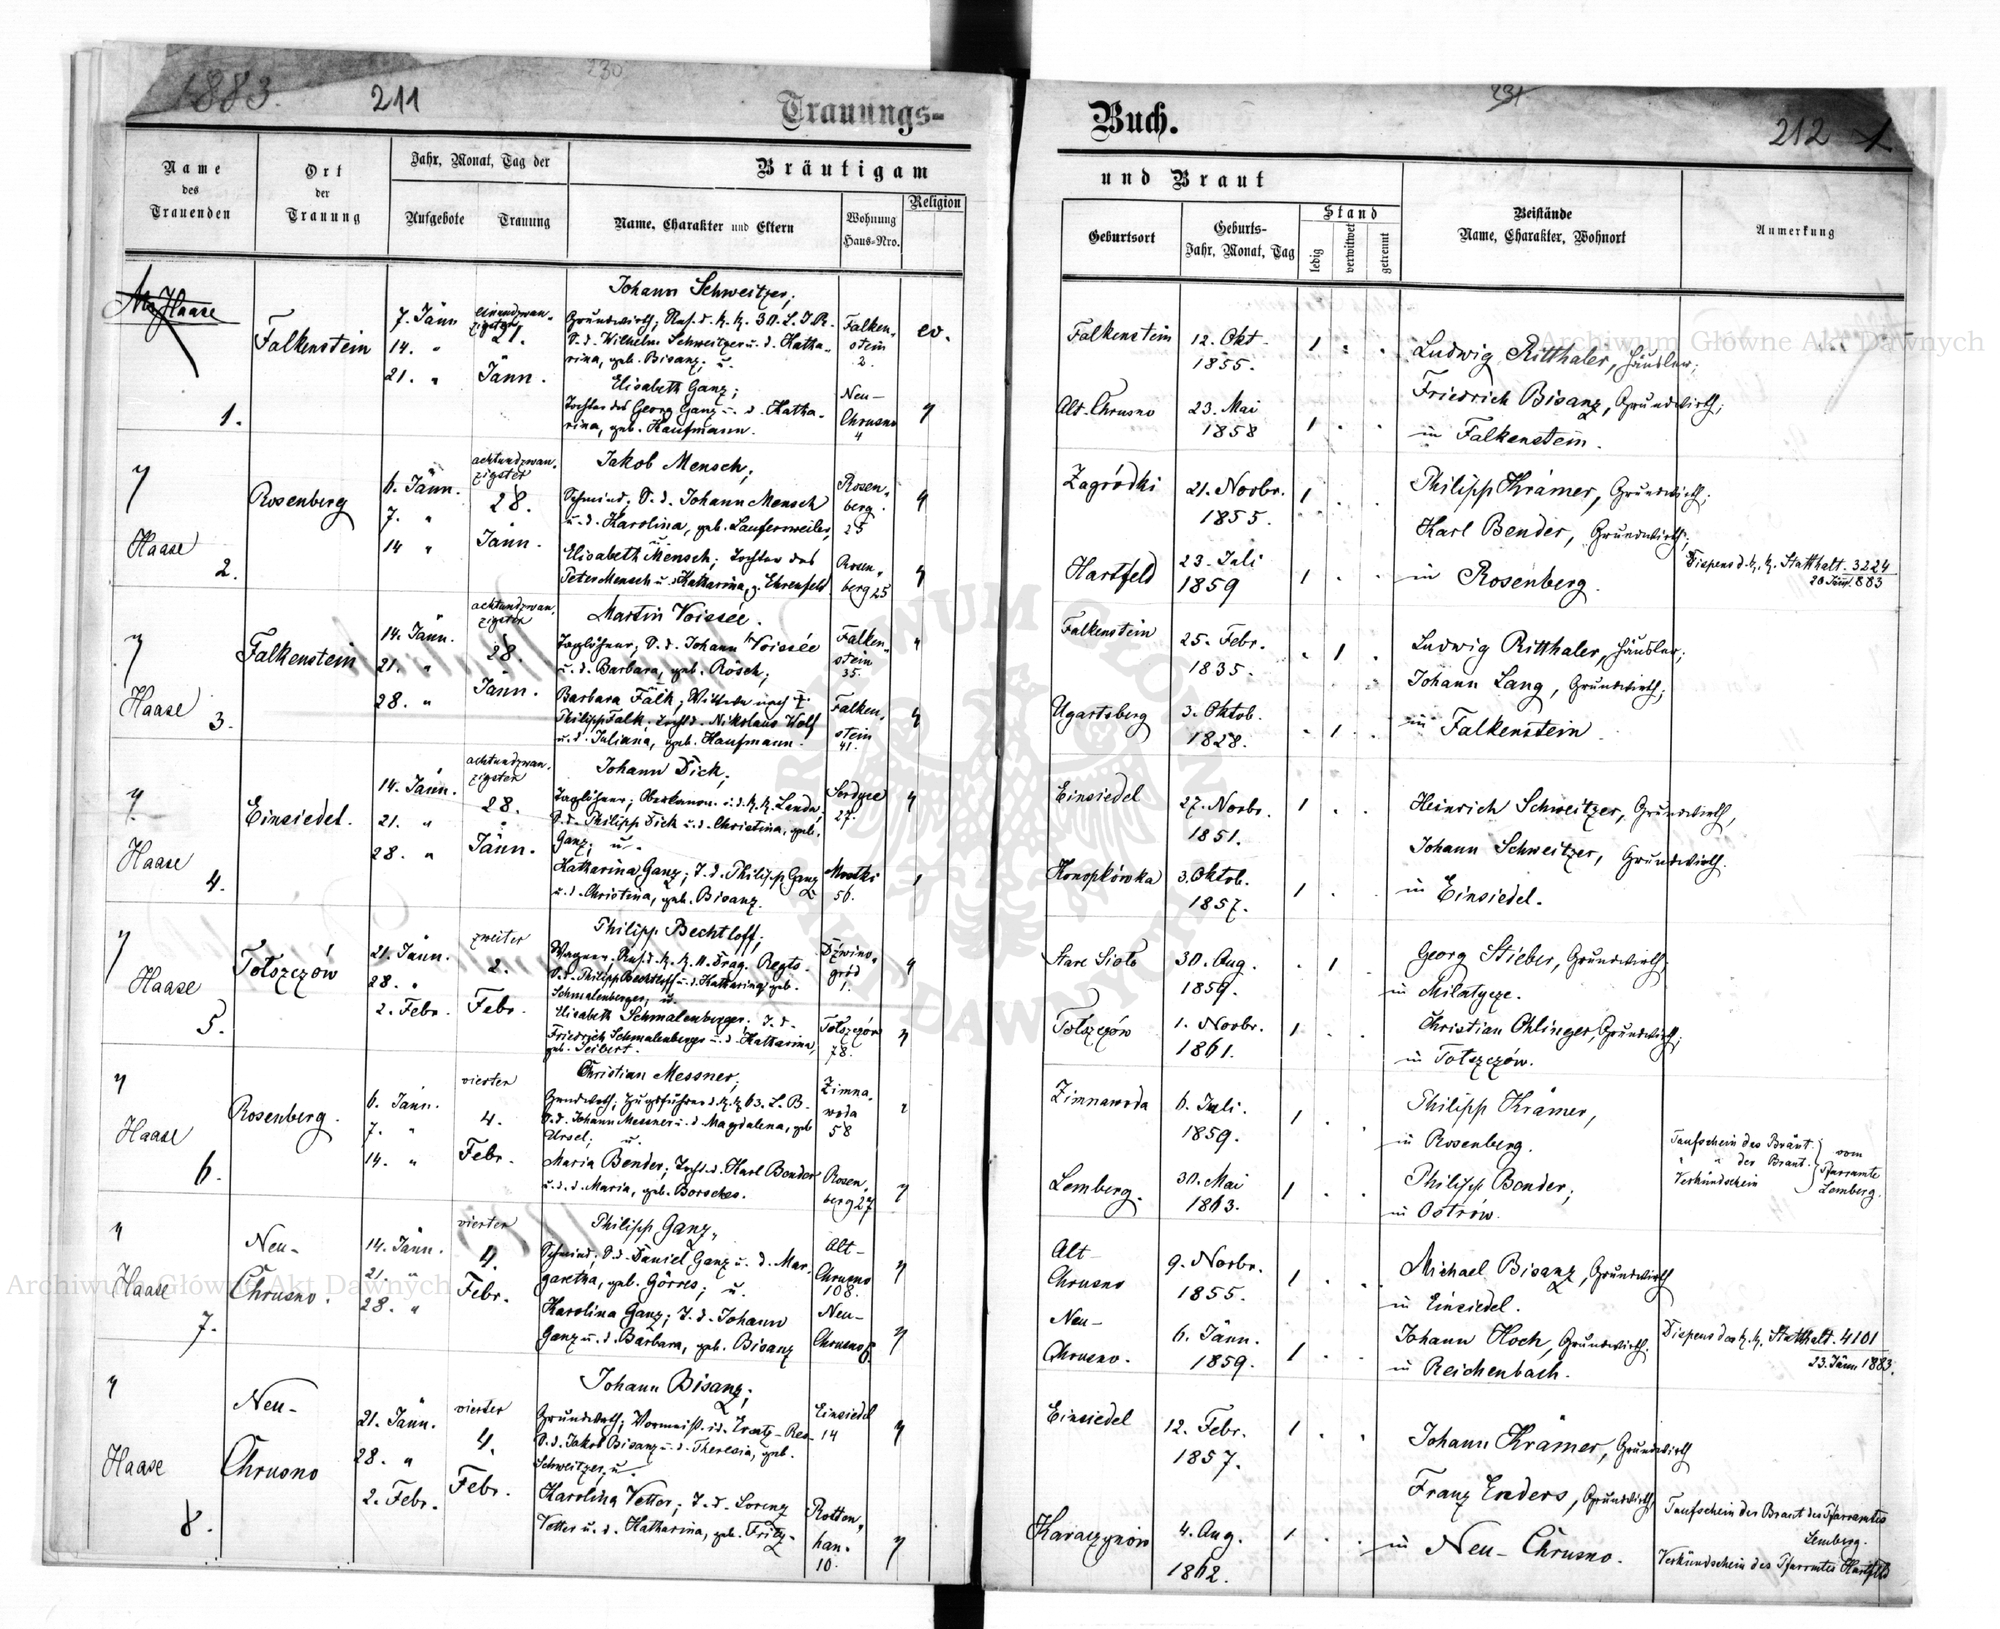 1883.
211
230
Trauungs-
Name des Trauenden
Ort der Trauung
Jahr, Monat, Tag der
Aufgebote
Trauung
Bräutigam
Name, Charakter und Eltern
Wohnung Haus-Nro.
Religion
Haase
1.
Falkenstein
7. Jänn
14. "
21. "
einundzwan-
zigster
21.
Jänn.
Johann Schweitzer;
S. d. Wilhelm Schweitzer u. d. Katha-
rina, geb. Bisanz; u.
Elisabeth Ganz;
Tochter des Georg Ganz u. d. Katha-
rina, geb. Kaufmann.
Falken-
stein
2.
Neu-
Chrusno
4
ev.
"
"
Haase
2.
Rosenberg
6. Jänn.
7. "
14 "
achtundzwan-
zigster
28.
Jänn.
Jakob Mensch;
Schmied; S. d. Johann Mensch
u. d. Karolina, geb. Laufersweiler,
u.
Elisabeth Mensch; Tochter des
Peter Mensch u. d. Katharina, g. Ehrenfeld
Rosen-
berg.
25
Rosen-
berg 25
"
"
"
Haase
3.
Falkenstein
14. Jänn.
21. "
28. "
achtundzwan-
zigster
28.
Jänn.
Martin Voissée.
Taglöhner; S. d. Johann Voissée
u. d. Barbara, geb. Rösch;
Barbara Falk, Witwe nach
Philipp Falk. Tocht. d. Nikolaus Wolf
u. d. Juliana, geb. Kaufmann.
Falken-
stein
35.
Falken-
stein
41.
"
"
"
Haase
4.
Einsiedel.
14. Jänn.
21. "
28. "
achtundzwan-
zigster
28.
Jänn.
Johann Dick;
S. d. Philipp Dick u. d. Christina, geb.
Ganz; u.
Katharina Ganz; T. d. Philipp Ganz
u. d. Christina, geb. Bisanz.
27.
56.
"
"
Haase
5.
Tołszczów
21. Jänn.
28. "
2. Febr.
zweiter
2.
Febr.
Philipp Bechtloff;
S. d. Philipp Bechtloff u. d. Katharina, geb.
Schmalenberger, u.
Elisabeth Schmalenberger. T. d.
Friedrich Schmalenberger u. d. Katharina,
geb. Seibert.
Dźwino-
gród
1.
Tołszczów
78.
"
"
"
Haase
6.
Rosenberg.
6. Jänn.
7. "
14. "
vierter
4.
Febr.
Christian Messner;
S. d. Johann Messner u. d. Magdalena, geb
Ursel; u.
Maria Bender; Tocht. d. Karl Bender
u. d. Maria, geb. Borsches.
Zimna-
woda
58
Rosen-
berg 27
"
"
Haase
7.
Neu-
Chrusno.
14. Jänn.
21. "
28. "
vierter
4.
Febr.
Philipp Ganz,
Schmied; S. d. Daniel Ganz u. d. Mar-
garetha, geb. Görres; u.
Karolina Ganz; T. d. Johann
Ganz u. d. Barbara, geb. Bisanz
Alt-
Chrusno
108.
Neu-
Chrusno 8.
"
"
"
Haase
8.
Neu-
Chrusno
21. Jänn.
28. "
2. Febr.
vierter
4.
Febr.
Johann Bisanz;
S. d. Jakob Bisanz u. d. Theresia, geb.
Schweitzer, u.
Karolina Vetter; T. d. Lorenz
Vetter u. d. Katharina, geb. Fritz.
Einsiedel
14
Rotten-
han.
10.
"
"
Buch.
231
212
und Braut
Geburtsort
Geburts-
Jahr, Monat, Tag
Stand
ledig
verwitwet
getrennt
Beistände
Name, Charakter, Wohnort
Anmerkung
Falkenstein
12. Okt.
1855.
1
Alt-Chrusno
23. Mai
1858
1
Ludwig Ritthaler, Häusler;
Friedrich Bisanz, Grundwirth;
in Falkenstein.
Zagródki
21. Novbr.
1855.
1
Hartfeld
23. Juli
1859
1
Philipp Krämer, Grundwirth;
Karl Bender, Grundwirth;
in Rosenberg.
Dispens d. k. k. Statthalt. 3224
20 Jänn. 883
Falkenstein
25. Febr.
1835.
1
Ugartsberg
3. Oktob.
1828.
1
Ludwig Ritthaler, Häusler;
Johann Lang, Grundwirth;
in Falkenstein
Einsiedel
27. Novbr.
1851.
1
Konopkówka
3. Oktob.
1857.
1
Heinrich Schweitzer, Grundwirth,
Johann Schweitzer, Grundwirth.
in Einsiedel.
Stare Sioło
30. Aug.
1859.
1
Tołszczów
1. Novbr.
1861.
1
Georg Stieber, Grundwirth,
in Milatycze.
Christian Ohlinger, Grundwirth;
in Tołszczów.
Zimnawoda
6. Juli.
1859.
1
Lemberg.
30. Mai
1863.
1
Philipp Krämer,
in Rosenberg.
Philipp Bender;
in Ostrów.
Taufschein des Bräut.
" der Braut.
Verkündschein
vom
Pfarramte
Lemberg.
Alt-
Chrusno
9. Novbr.
1855.
1
Neu-
Chrusno.
6. Jänn.
1859.
1
Michael Bisanz, Grundwirth
in Einsiedel.
Johann Koch, Grundwirth.
in Reichenbach.
Dispens der k. k. Statthalt. 4101
23. Jänn. 1883.
Einsiedel
12. Febr.
1857.
1
Karaczynów
4. Aug.
1862.
1
Johann Krämer, Grundwirth
Franz Enders, Grundwirth,
in Neu-Chrusno.
Taufschein der Braut des Pfarramtes
Lemberg.
Verkündschein des Pfarramtes Hartfeld
Archiwum Główne Akt Dawnych
Archiwum Główne Akt Dawnych
ARCHIWUM GŁÓWNE AKT DAWNYCH